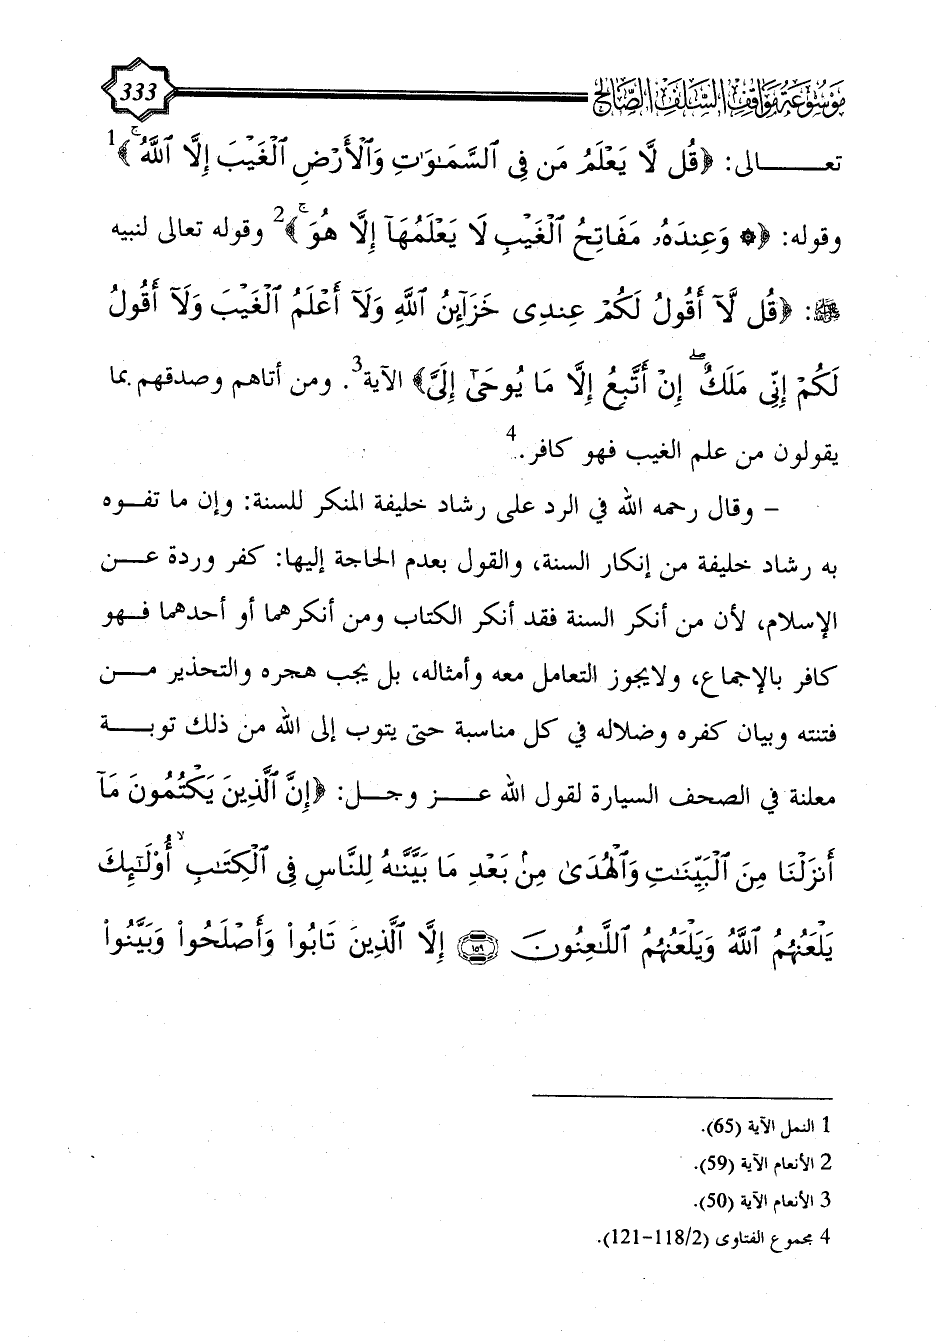 موسوعة مواقف السلف الصالح 333
تعـــــالى: ﴿قُل لَّا يَعْلَمُ مَن فِى ٱلسَّمَٰوَٰتِ وَٱلْأَرْضِ ٱلْغَيْبَ إِلَّا ٱللَّهُ ۚ﴾1
وقوله: ﴿۞ وَعِندَهُۥ مَفَاتِحُ ٱلْغَيْبِ لَا يَعْلَمُهَآ إِلَّا هُوَ ۚ﴾2 وقوله تعالى لنبيه
ﷺ: ﴿قُل لَّآ أَقُولُ لَكُمْ عِندِى خَزَآئِنُ ٱللَّهِ وَلَآ أَعْلَمُ ٱلْغَيْبَ وَلَآ أَقُولُ
لَكُمْ إِنِّى مَلَكٌ ۖ إِنْ أَتَّبِعُ إِلَّا مَا يُوحَىٰٓ إِلَىَّ﴾ الآية3. ومن أتاهم وصدقهم بما
يقولون من علم الغيب فهو كافر.4
- وقال رحمه الله في الرد على رشاد خليفة المنكر للسنة: وإن ما تفـوه
به رشاد خليفة من إنكار السنة، والقول بعدم الحاجة إليها: كفر وردة عـــن
الإسلام، لأن من أنكر السنة فقد أنكر الكتاب ومن أنكرهما أو أحدهما فـهو
كافر بالإجماع، ولايجوز التعامل معه وأمثاله، بل يجب هجره والتحذير مـــن
فتنته وبيان كفره وضلاله في كل مناسبة حتى يتوب إلى الله من ذلك توبـــة
معلنة في الصحف السيارة لقول الله عـــز وجــل: ﴿إِنَّ ٱلَّذِينَ يَكْتُمُونَ مَآ
أَنزَلْنَا مِنَ ٱلْبَيِّنَٰتِ وَٱلْهُدَىٰ مِنۢ بَعْدِ مَا بَيَّنَّٰهُ لِلنَّاسِ فِى ٱلْكِتَٰبِ ۙ أُو۟لَٰٓئِكَ
يَلْعَنُهُمُ ٱللَّهُ وَيَلْعَنُهُمُ ٱللَّٰعِنُونَ ۝١٥٩ إِلَّا ٱلَّذِينَ تَابُوا۟ وَأَصْلَحُوا۟ وَبَيَّنُوا۟
1 النمل الآية (65).
2 الأنعام الآية (59).
3 الأنعام الآية (50).
4 مجموع الفتاوى (118/2-121).